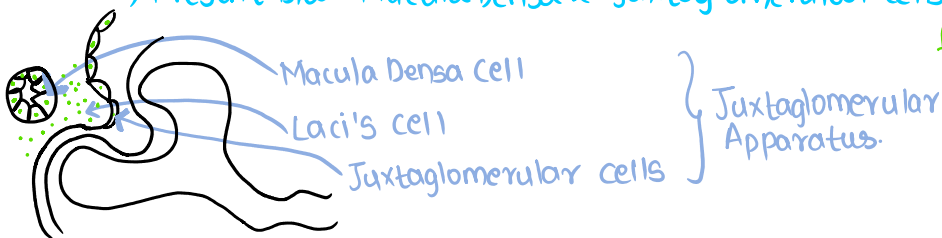 Macula Densa cell
Laci's cell
Juxtaglomerular cells
Juxtaglomerular
Apparatus.